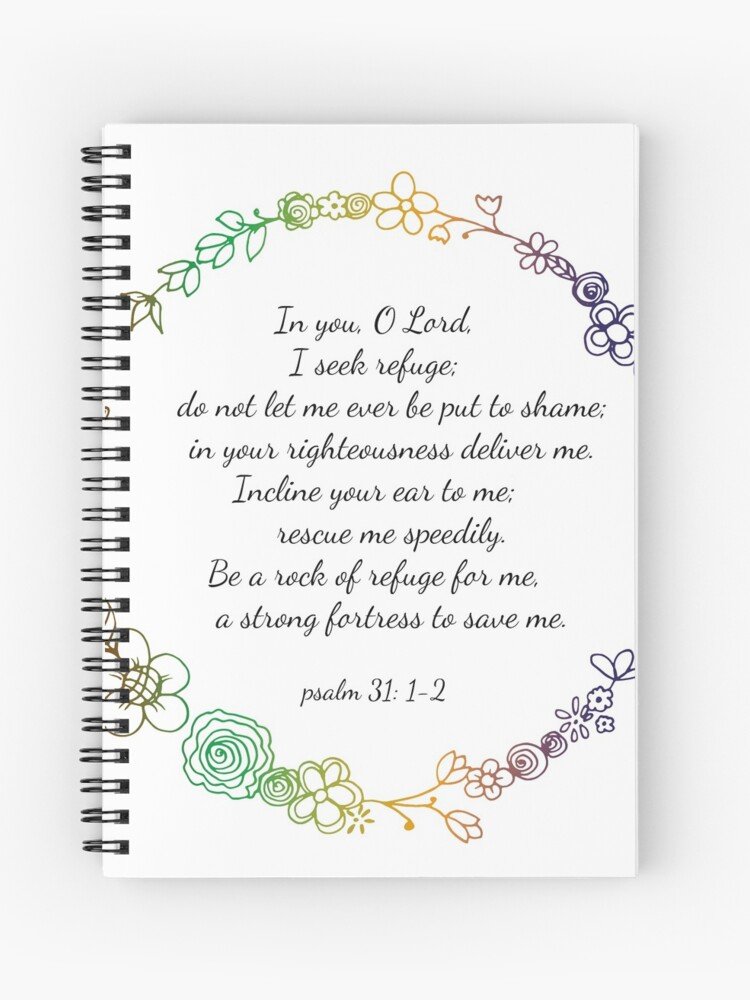 In you, O Lord,
I seek refuge;
do not let me ever be put to shame;
in your righteousness deliver me.
Incline your ear to me;
rescue me speedily.
Be a rock of refuge for me,
a strong fortress to save me.
psalm 31: 1-2